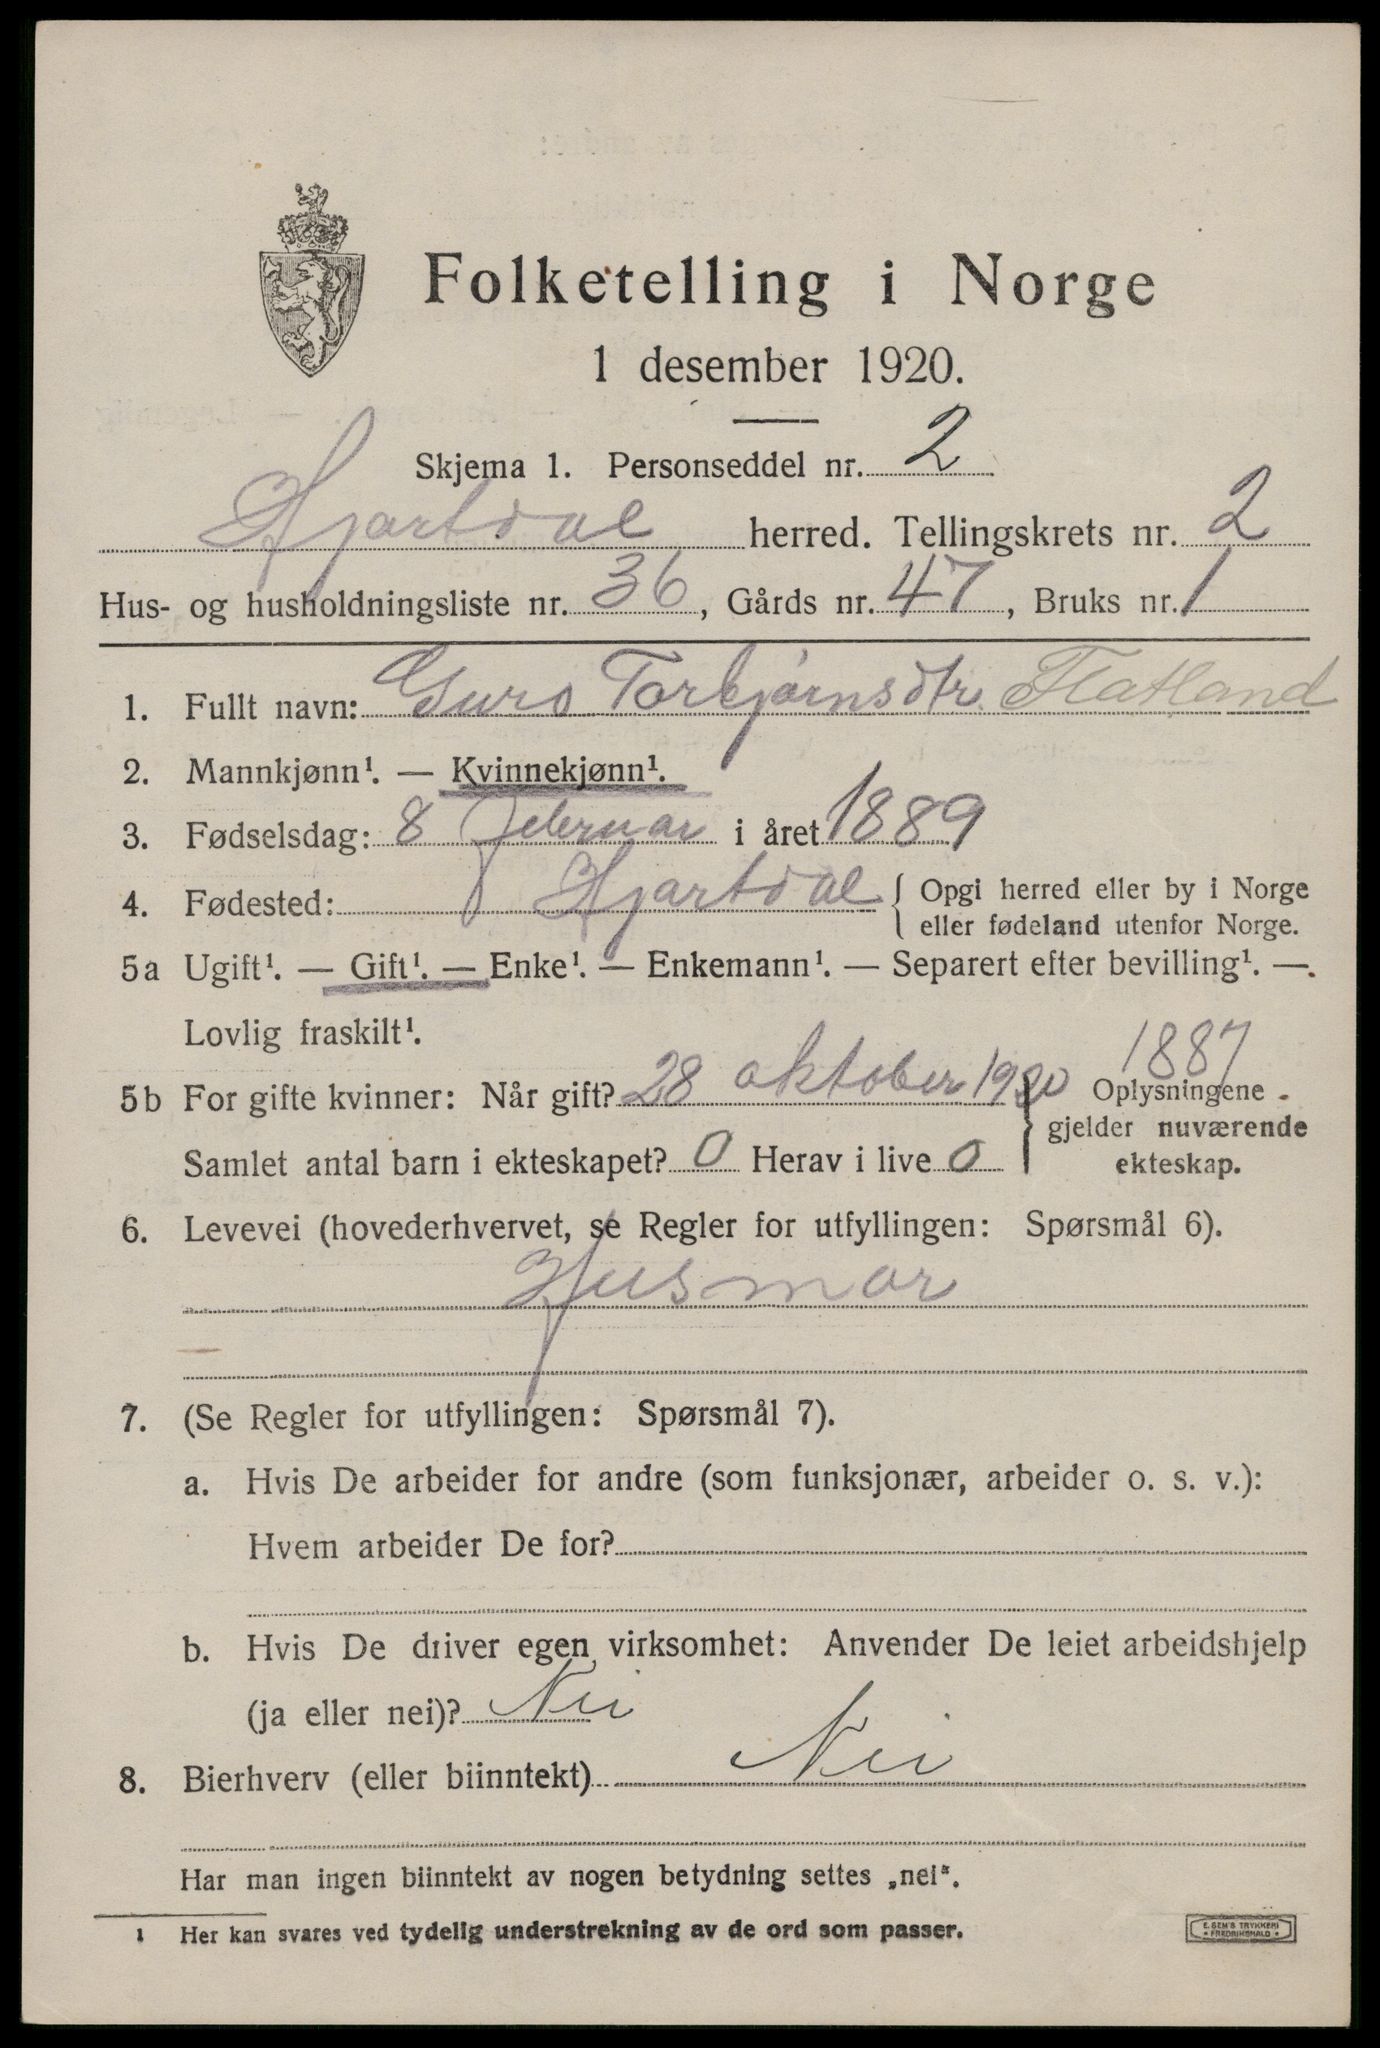 Folketelling i Norge
1 desember 1920.
Skjema 1. Personseddel nr. 2
Hjartdal herred. Tellingskrets nr. 2
Hus- og husholdningsliste nr. 36, Gårds nr. 47, Bruks nr. 1
1. Fullt navn: Guro Torbjørnsdtr. Flatland
2. Mannkjønn¹. — Kvinnekjønn¹.
3. Fødselsdag: 8 februar i året 1889
4. Fødested: Hjartdal { Opgi herred eller by i Norge
eller fødeland utenfor Norge.
5a Ugift¹. — Gift¹. — Enke¹. — Enkemann¹. — Separert efter bevilling¹. —
Lovlig fraskilt¹.
1887
5b For gifte kvinner: Når gift? 28 oktober 1920 } Oplysningene
gjelder nuværende
Samlet antal barn i ekteskapet? 0 Herav i live 0 ekteskap.
6. Levevei (hovederhvervet, se Regler for utfyllingen: Spørsmål 6).
Husmor
7. (Se Regler for utfyllingen: Spørsmål 7).
a. Hvis De arbeider for andre (som funksjonær, arbeider o. s. v.):
Hvem arbeider De for?
b. Hvis De driver egen virksomhet: Anvender De leiet arbeidshjelp
(ja eller nei)? Nei
8. Bierhverv (eller biinntekt) Nei
Har man ingen biinntekt av nogen betydning settes „nei".
1 Her kan svares ved tydelig understrekning av de ord som passer.
E. SEM'S TRYKKERI
• FREDRIKSHALD •